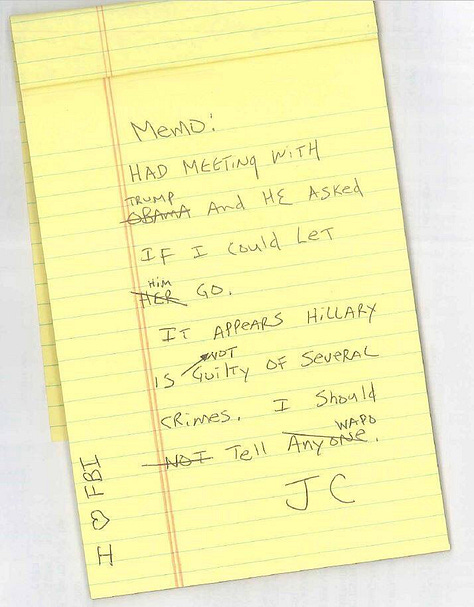 Memo:
HAD MEETING WITH
TRUMP
OBAMA And HE Asked
IF I Could LET
HIM
HER GO.
IT APPEARS HILLARY
NOT
IS Guilty OF Several
CRIMES. I Should
WAPO
NOT Tell Anyone.
JC
I ♡ FBI